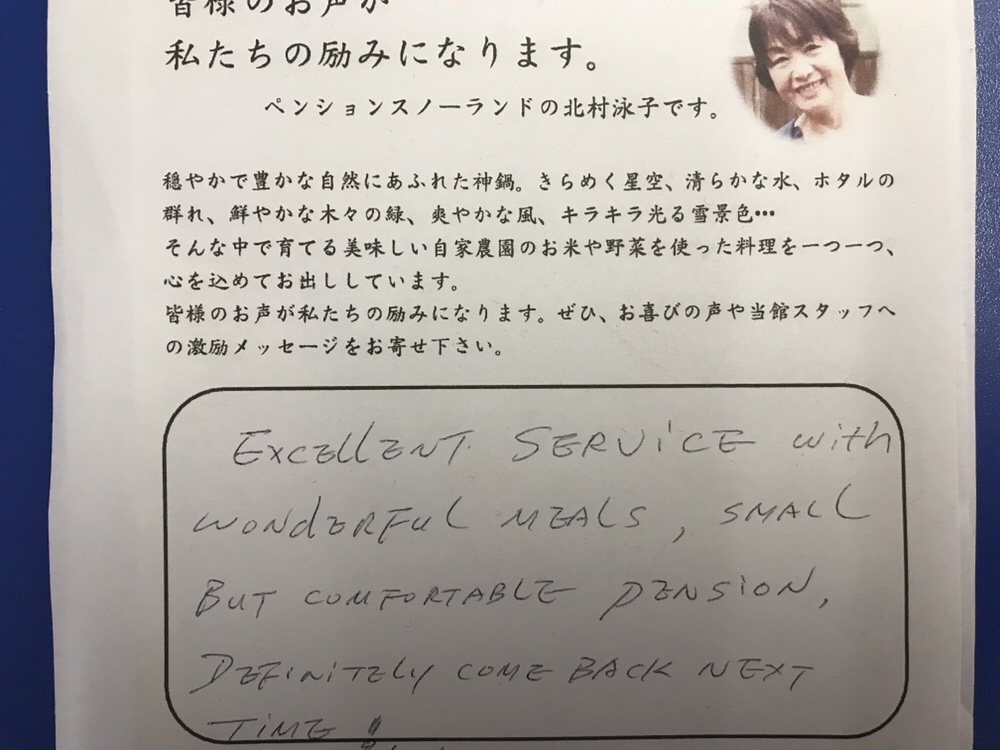 皆様のお声が
私たちの励みになります。
ペンションスノーランドの北村泳子です。
穏やかで豊かな自然にあふれた神鍋。きらめく星空、清らかな水、ホタルの
群れ、鮮やかな木々の緑、爽やかな風、キラキラ光る雪景色…
そんな中で育てる美味しい自家農園のお米や野菜を使った料理を一つ一つ、
心を込めてお出ししています。
皆様のお声が私たちの励みになります。ぜひ、お喜びの声や当館スタッフへ
の激励メッセージをお寄せ下さい。
EXCELLENT SERVICE with
WONDERFUL MEALS, SMALL
BUT COMFORTABLE PENSION,
DEFINITELY COME BACK NEXT
TIME!